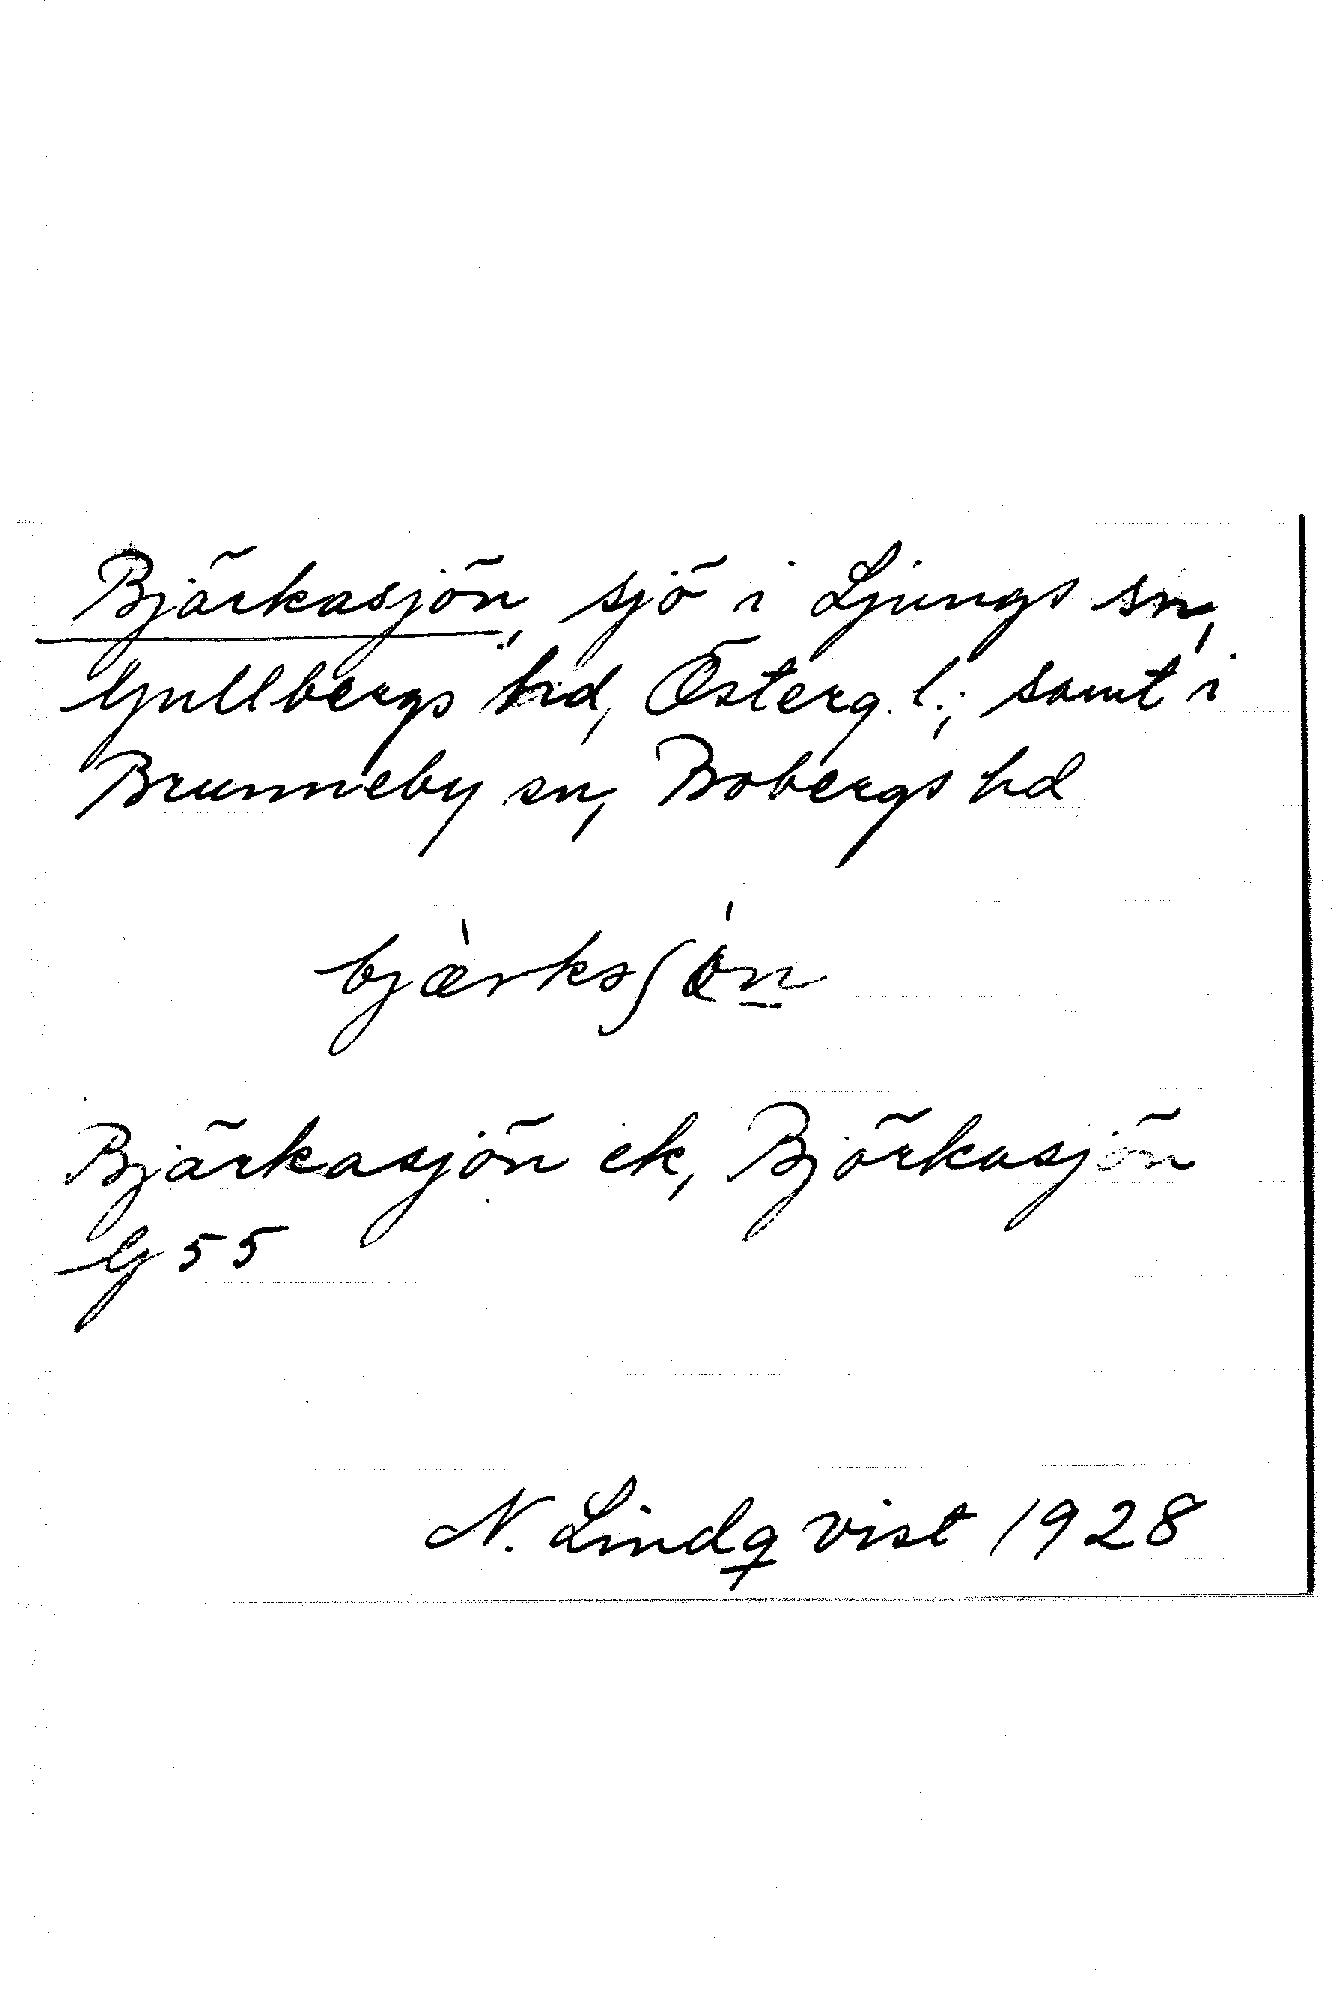 Bjärkasjön, sjö i Ljungs sn,
Gullbergs hd, Österg. l.; samt i
Brunneby sn, Bobergs hd
bjæ̀rksʃön
Bjärkasjön ek, Björkasjön
G 55
N. Lindqvist 1928